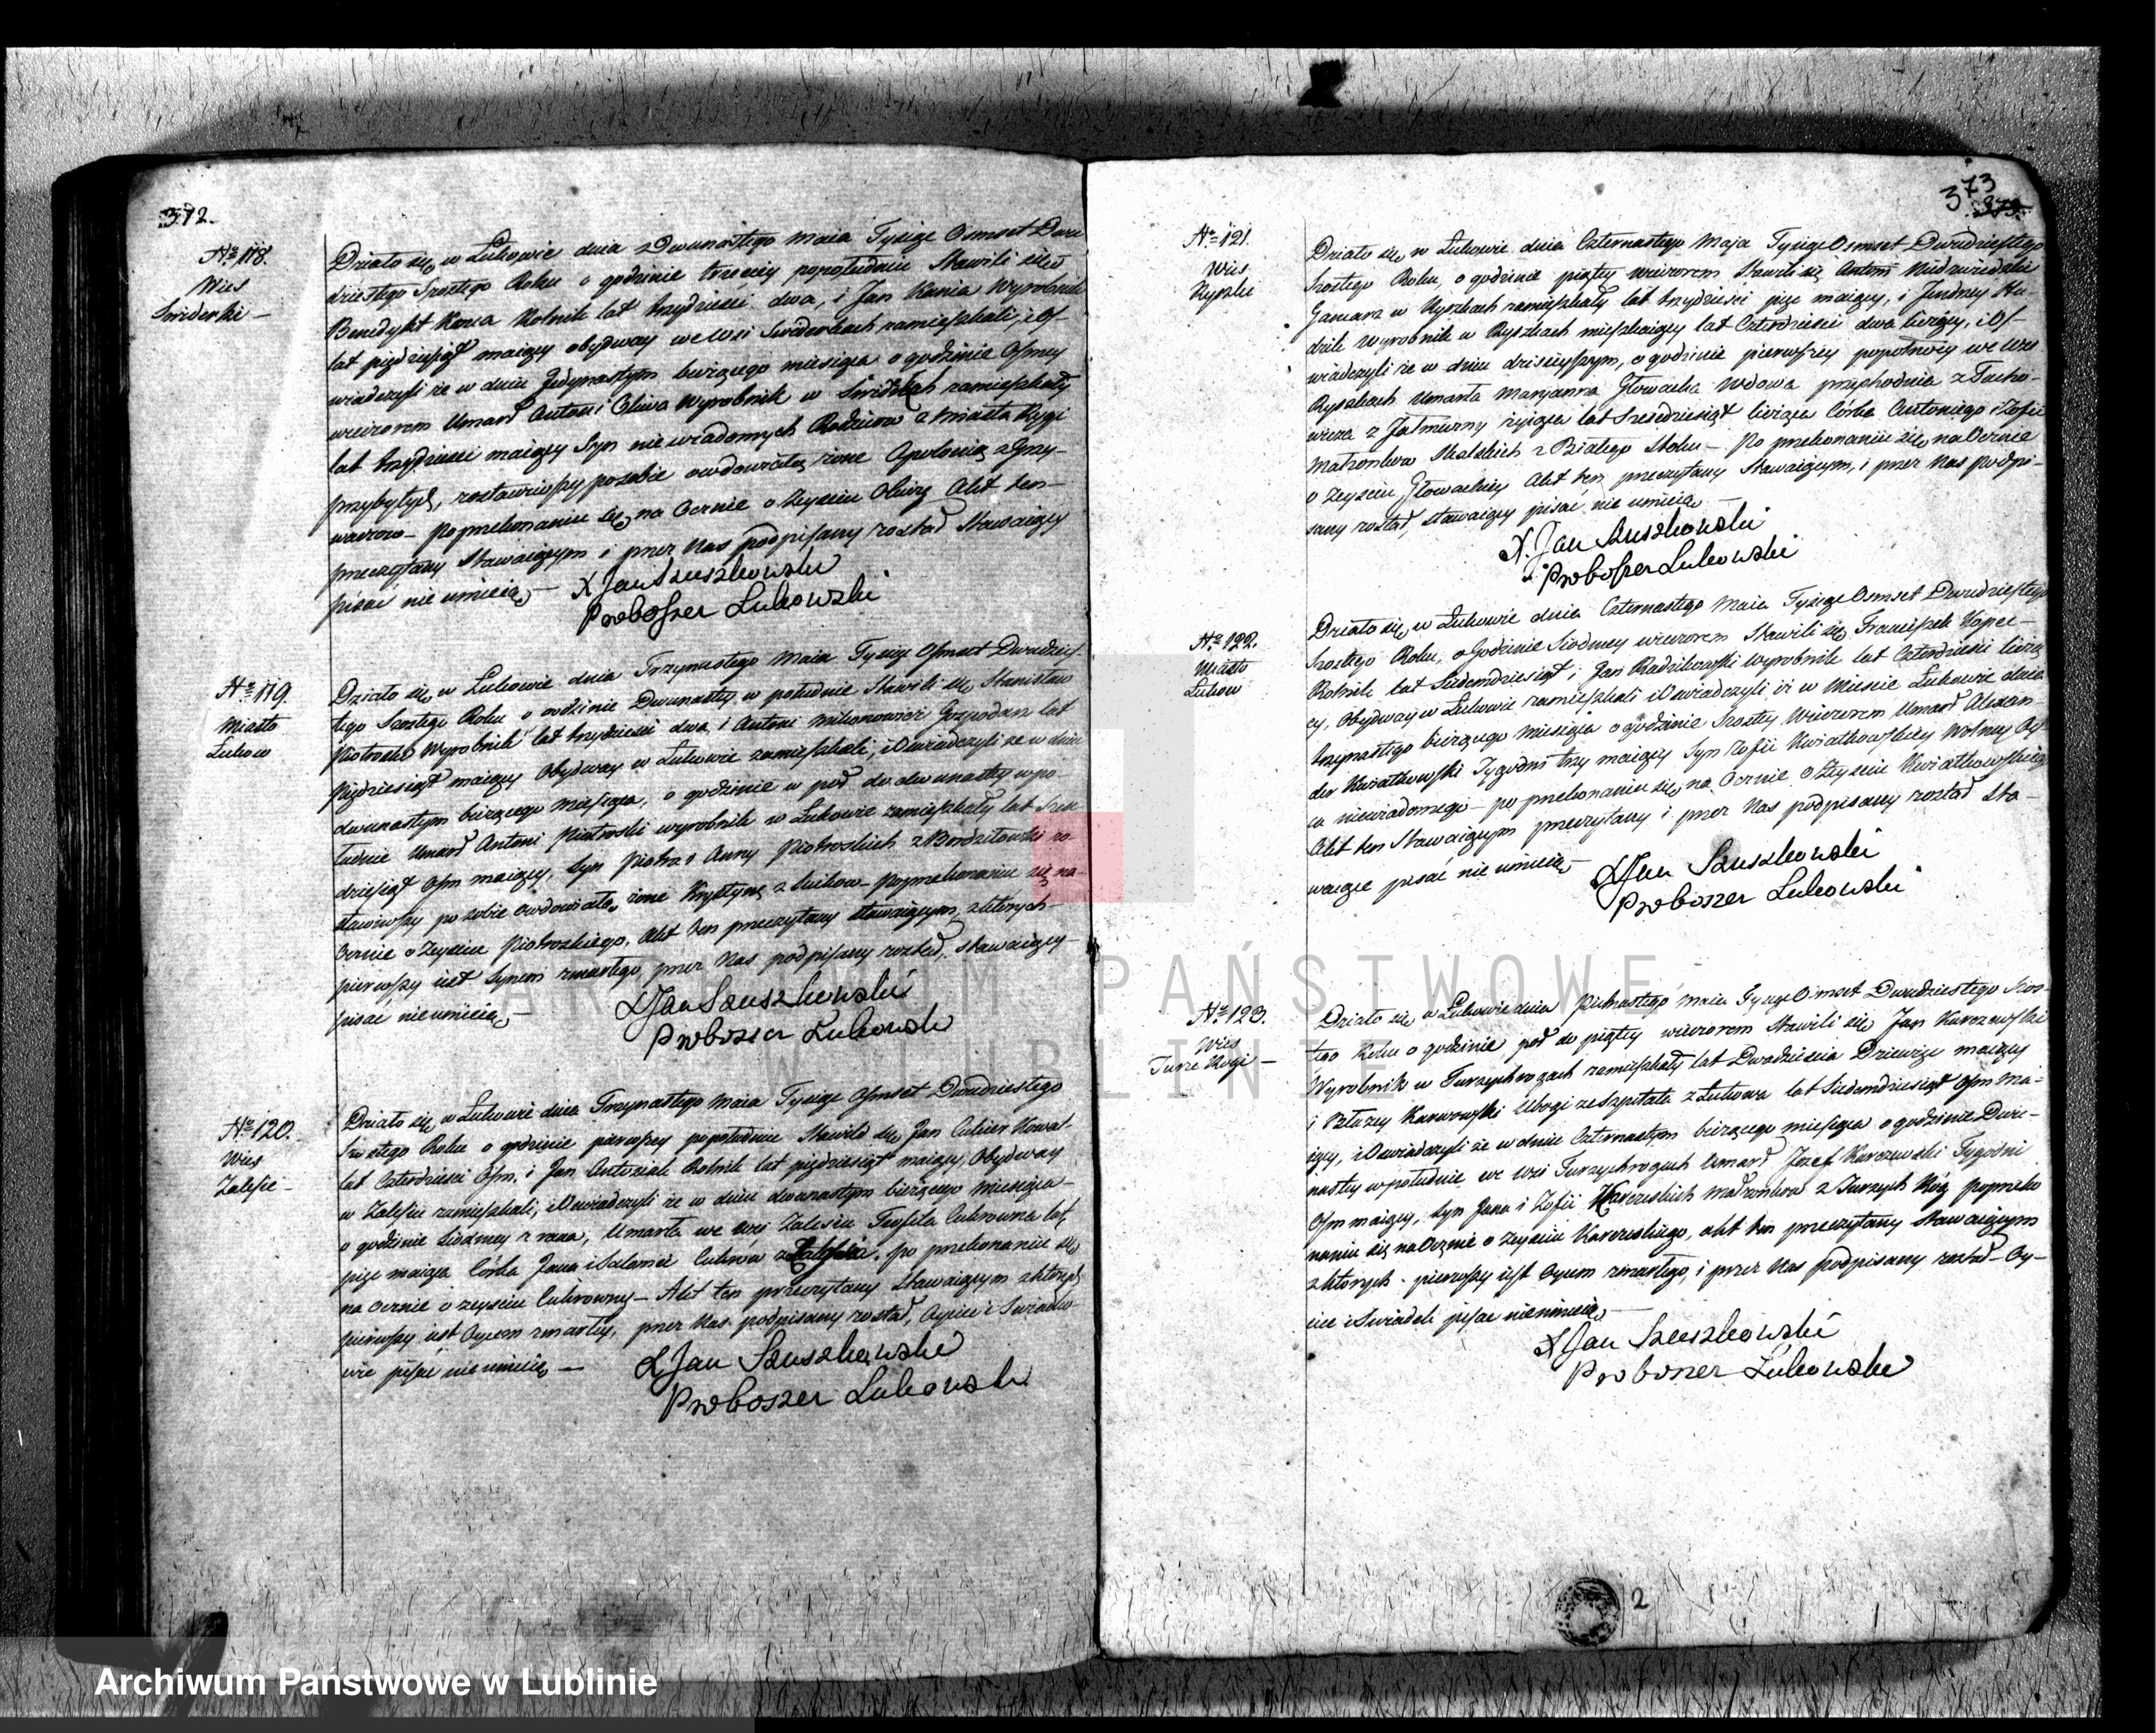 372.
No 118.
Wies
Swiderki —
Działo się w Łukowie dnia Dwunastego Maia Tysiąc Osmset Dwu
dziestego Szostego Roku o godzinie trzeciey popołudniu Stawili się
Benedykt Kania Rolnik lat trzydziesci dwa, i Jan Kania Wyrobnik
lat pięćdziesiąt maiący obydway we Wsi Swiderkach zamieszkali, i Oś-
wiadczyli że w dniu Jedynastym bieżącego miesiąca o godzinie Osmey
wieczorem Umarł Antoni Oliwa Wyrobnik w Swiderkach zamieszkały
lat trzydziesci maiący Syn niewiadomych Rodziców z Miasta
przybyłych, zostawiwszy po sobie owdowiałą żonę Apolonią
— Po przekonaniu się na Ocznie o Zeysciu Oliwy Akt ten —
przeczytany Stawaiącym i przez Nas podpisany został Stawaiący
pisać nie umieią —
X Jan Szuszkowski
Proboszcz Łukowski
No 119.
Miasto
Łukow
Działo się w Łukowie dnia Trzynastego Maia Tysiąc Osmset Dwudzies-
tego Szostego Roku o godzinie Dwunastey w południe Stawili się Stanisław
Piotroski Wyrobnik lat trzydziesci dwa, i Antoni Gospodarz lat
Pięćdziesiąt maiący Obydway w Łukowie zamieszkali, i Oswiadczyli że w dniu
dwunastym bieżącego Miesiąca, o godzinie w poł do dwunastey w po-
łudnie Umarł Antoni Piotroski wyrobnik w Łukowie zamieszkały lat Szes-
dziesiąt Osm maiący, Syn Piotra i Anny Piotroskich z zo-
stawiwszy po sobie owdowiałą żonę Krystynę z — Po przekonaniu się na-
Ocznie o Zeysciu Piotroskiego, Akt ten przeczytany stawaiącym, z których
pierwszy iest Synem zmarłego, przez Nas podpisany został, stawaiący —
pisać nie umieią, —
X Jan Szuszkowski
Proboszcz Łukowski
No 120.
Wies
Zalesie —
Działo się w Łukowie dnia Trzynastego Maia Tysiąc Osmset Dwudziestego
Szostego Roku o godzinie pierwszey popołudniu Stawili się Jan Kowal
lat Czterdziesci Osm, i Jan Rolnik lat pięćdziesiąt maiący, Obydway
w Zalesiu zamieszkali, i Oswiadczyli że w dniu dwunastym bieżącego Miesiąca —
o godzinie Siodmey z rana, Umarła we Wsi Zalesiu Teofila Cukrowna lat
pięc maiąca Córka Jana i Salomei z Zalesia. Po przekonaniu się
na Ocznie o zeysciu Cukrowny — Akt ten przeczytany Stawaiącym z których
pierwszy iest Oycem zmarłey, przez Nas podpisany został, Oyciec i Swiadko-
wie pisać nie umieią —
X Jan Szuszkowski
Proboszcz Łukowski
373
No 121.
Wies
Ryszki
Działo się w Łukowie dnia Czternastego Maja Tysiąc Osmset Dwudziestego
Szostego Roku, o godzinie piątey wieczorem Stawili się Antoni
Garncarz w Ryszkach zamieszkały lat trzydziesci pięc maiący, i Jendrzey
Wyrobnik w Ryszkach mieszkaiący lat Czterdziesci dwa liczący, i Oś-
wiadczyli że w dniu dzisieyszym, o godzinie pierwszey popołnocy we Wsi
Ryszkach Umarła Maryanna Głowacka Wdowa przychodnia z
z Jałmużny żyiąca lat Szescdziesiąt licząca Córka Antoniego i Zofii
Małżonkow Skalskich z Białego Stoku — Po przekonaniu się na Ocznie
o Zeysciu Głowackiey Akt ten przeczytany Stawaiącym, i przez Nas podpi-
sany został, stawaiący pisać nie umieią —
X. Jan Szuszkowski
Proboszcz Łukowski
No 122.
Miasto
Łukow
Działo się w Łukowie dnia Czternastego Maia Tysiąc Osmset Dwudziestego
Szostego Roku, o Godzinie Siodmey wieczorem Stawili się Franciszek Kopec —
Rolnik lat Siedemdziesiąt i Jan Radzikowski wyrobnik lat Czterdziesci liczą
cy, Obydway w Łukowie zamieszkali i Oswiadczyli iż w Miescie Łukowie dnia
trzynastego bieżącego miesiąca o godzinie Szostey Wieczorem Umarł Alexan
der Kwiatkowski Tygodni trzy maiący Syn Zofii Kwiatkowskiey Wolney Oy-
ca niewiadomego — po przekonaniu się na Ocznie o Zeysciu Kwiatkowskiego
Akt ten Stawaiącym przeczytany i przez Nas podpisany został Sta-
waiące pisać nie umieią —
X Jan Szuszkowski
Proboszcz Łukowski
No 123.
Wies
Turze Rogi —
Działo się w Łukowie dnia Pietnastego Maia Tysiąc Osmset Dwudziestego Szos-
tego Roku o godzinie poł do piątey wieczorem Stawili się Jan Karczewski
Wyrobnik w Turzychrogach zamieszkały lat Dwadziescia Dziewięc maiący
i Błażey Karwowski Ubogi ze Szpitala z Łukowa lat Siedemdziesiąt Osm ma-
iący, i Oswiadczyli że w dniu Czternastym bieżącego miesiąca o godzinie Dwu-
nastey w południe we Wsi Turzychrogach Umarł Jozef Karczewski Tygodni
Osm maiący, Syn Jana i Zofii Karczeskich małżonkow z Turzych Róg po przeko
naniu się na Ocznie o zeysciu Karczeskiego, akt ten przeczytany Stawaiącym
z których pierwszy iest Oycem zmarłego, i przez Nas podpisany został — Oy-
ciec i Swiadek pisac nie umieią —
X Jan Szuszkowski
Proboszcz Łukowski
2
ARCHIWUM PAŃSTWOWE
W LUBLINIE
Archiwum Państwowe w Lublinie